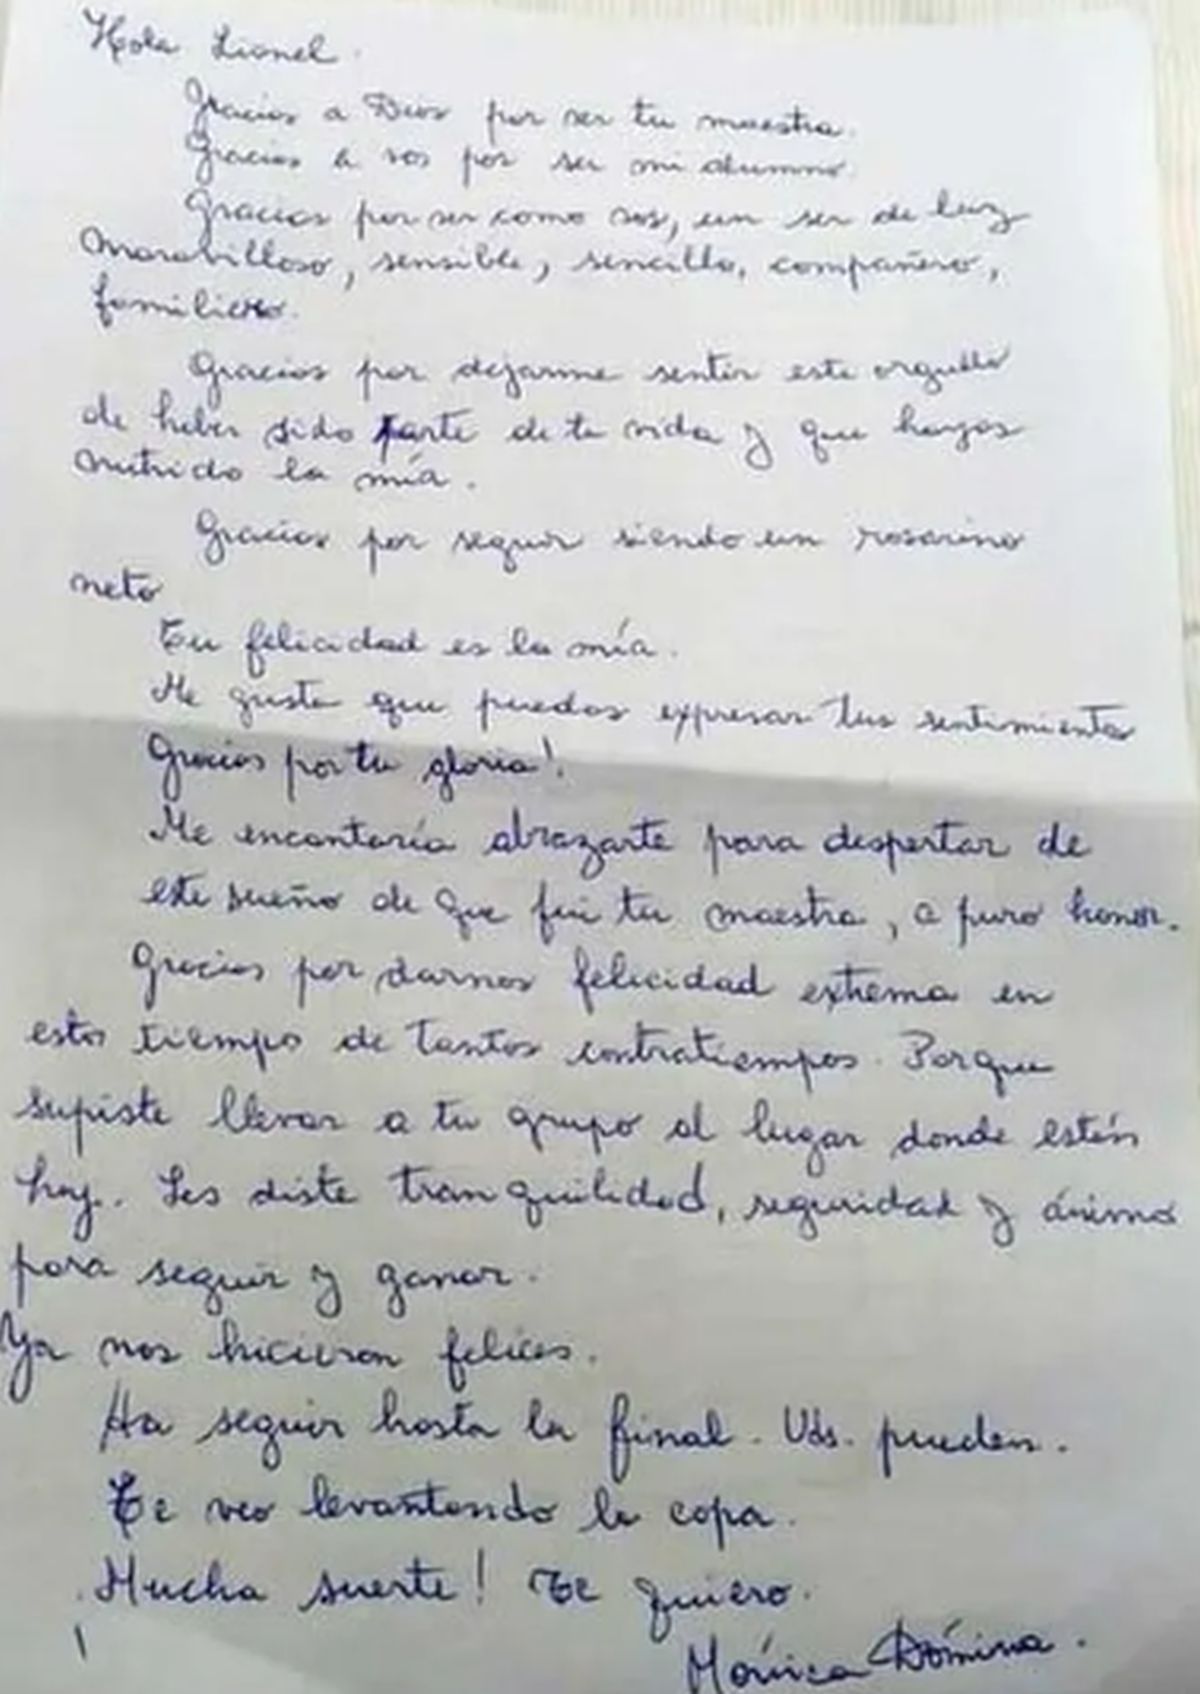 Hola Lionel.
Gracias a Dios por ser tu maestra.
Gracias a vos por ser mi alumno.
Gracias por ser como sos, un ser de luz
maravilloso, sensible, sencillo, compañero,
familiero.
Gracias por dejarme sentir este orgullo
de haber sido parte de tu vida y que hayas
nutrido la mía.
Gracias por seguir siendo un rosarino
neto
Tu felicidad es la mía.
Me gusta que puedas expresar tus sentimientos
Gracias por tu gloria!
Me encantaría abrazarte para despertar de
este sueño de que fui tu maestra, a puro honor.
Gracias por darnos felicidad extrema en
estos tiempos de tantos contratiempos. Porque
supiste llevar a tu grupo al lugar donde están
hoy. Les diste tranquilidad, seguridad y ánimo
para seguir y ganar.
Ya nos hicieron felices.
Ha seguir hasta la final. Uds. pueden.
Te veo levantando la copa.
Mucha suerte! Te quiero.
Mónica Dómina.